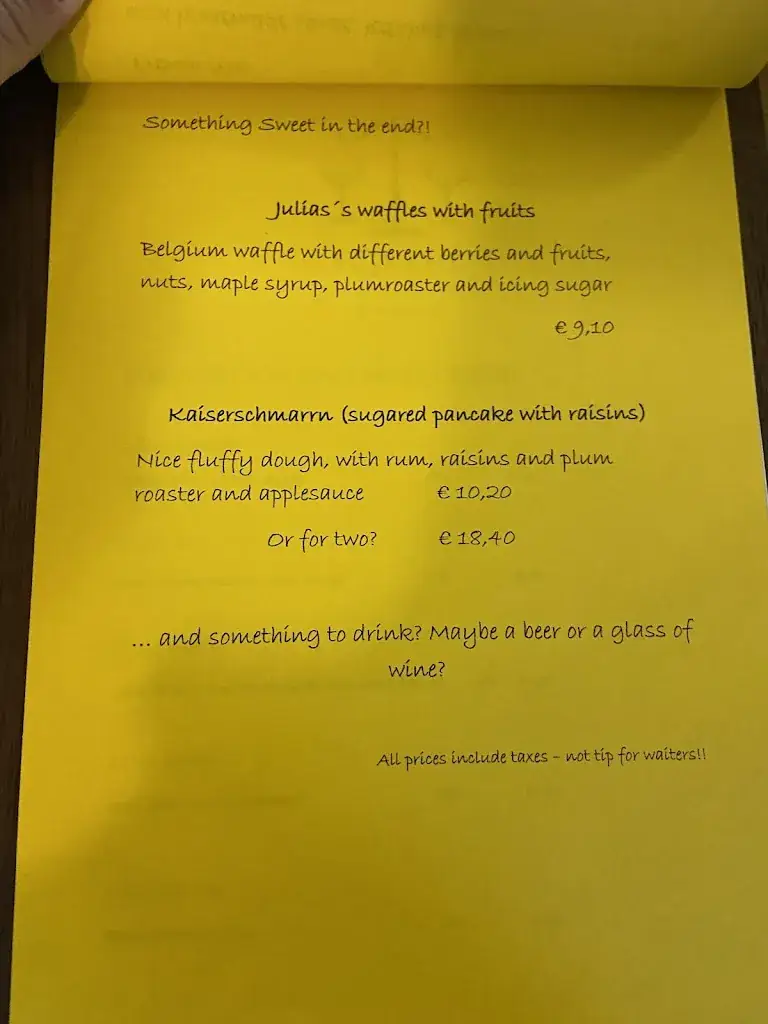 Something Sweet in the end?!
Julias´s waffles with fruits
Belgium waffle with different berries and fruits,
nuts, maple syrup, plumroaster and icing sugar
€ 9,10
Kaiserschmarrn (sugared pancake with raisins)
Nice fluffy dough, with rum, raisins and plum
roaster and applesauce € 10,20
Or for two? € 18,40
... and something to drink? Maybe a beer or a glass of
wine?
All prices include taxes - not tip for waiters!!